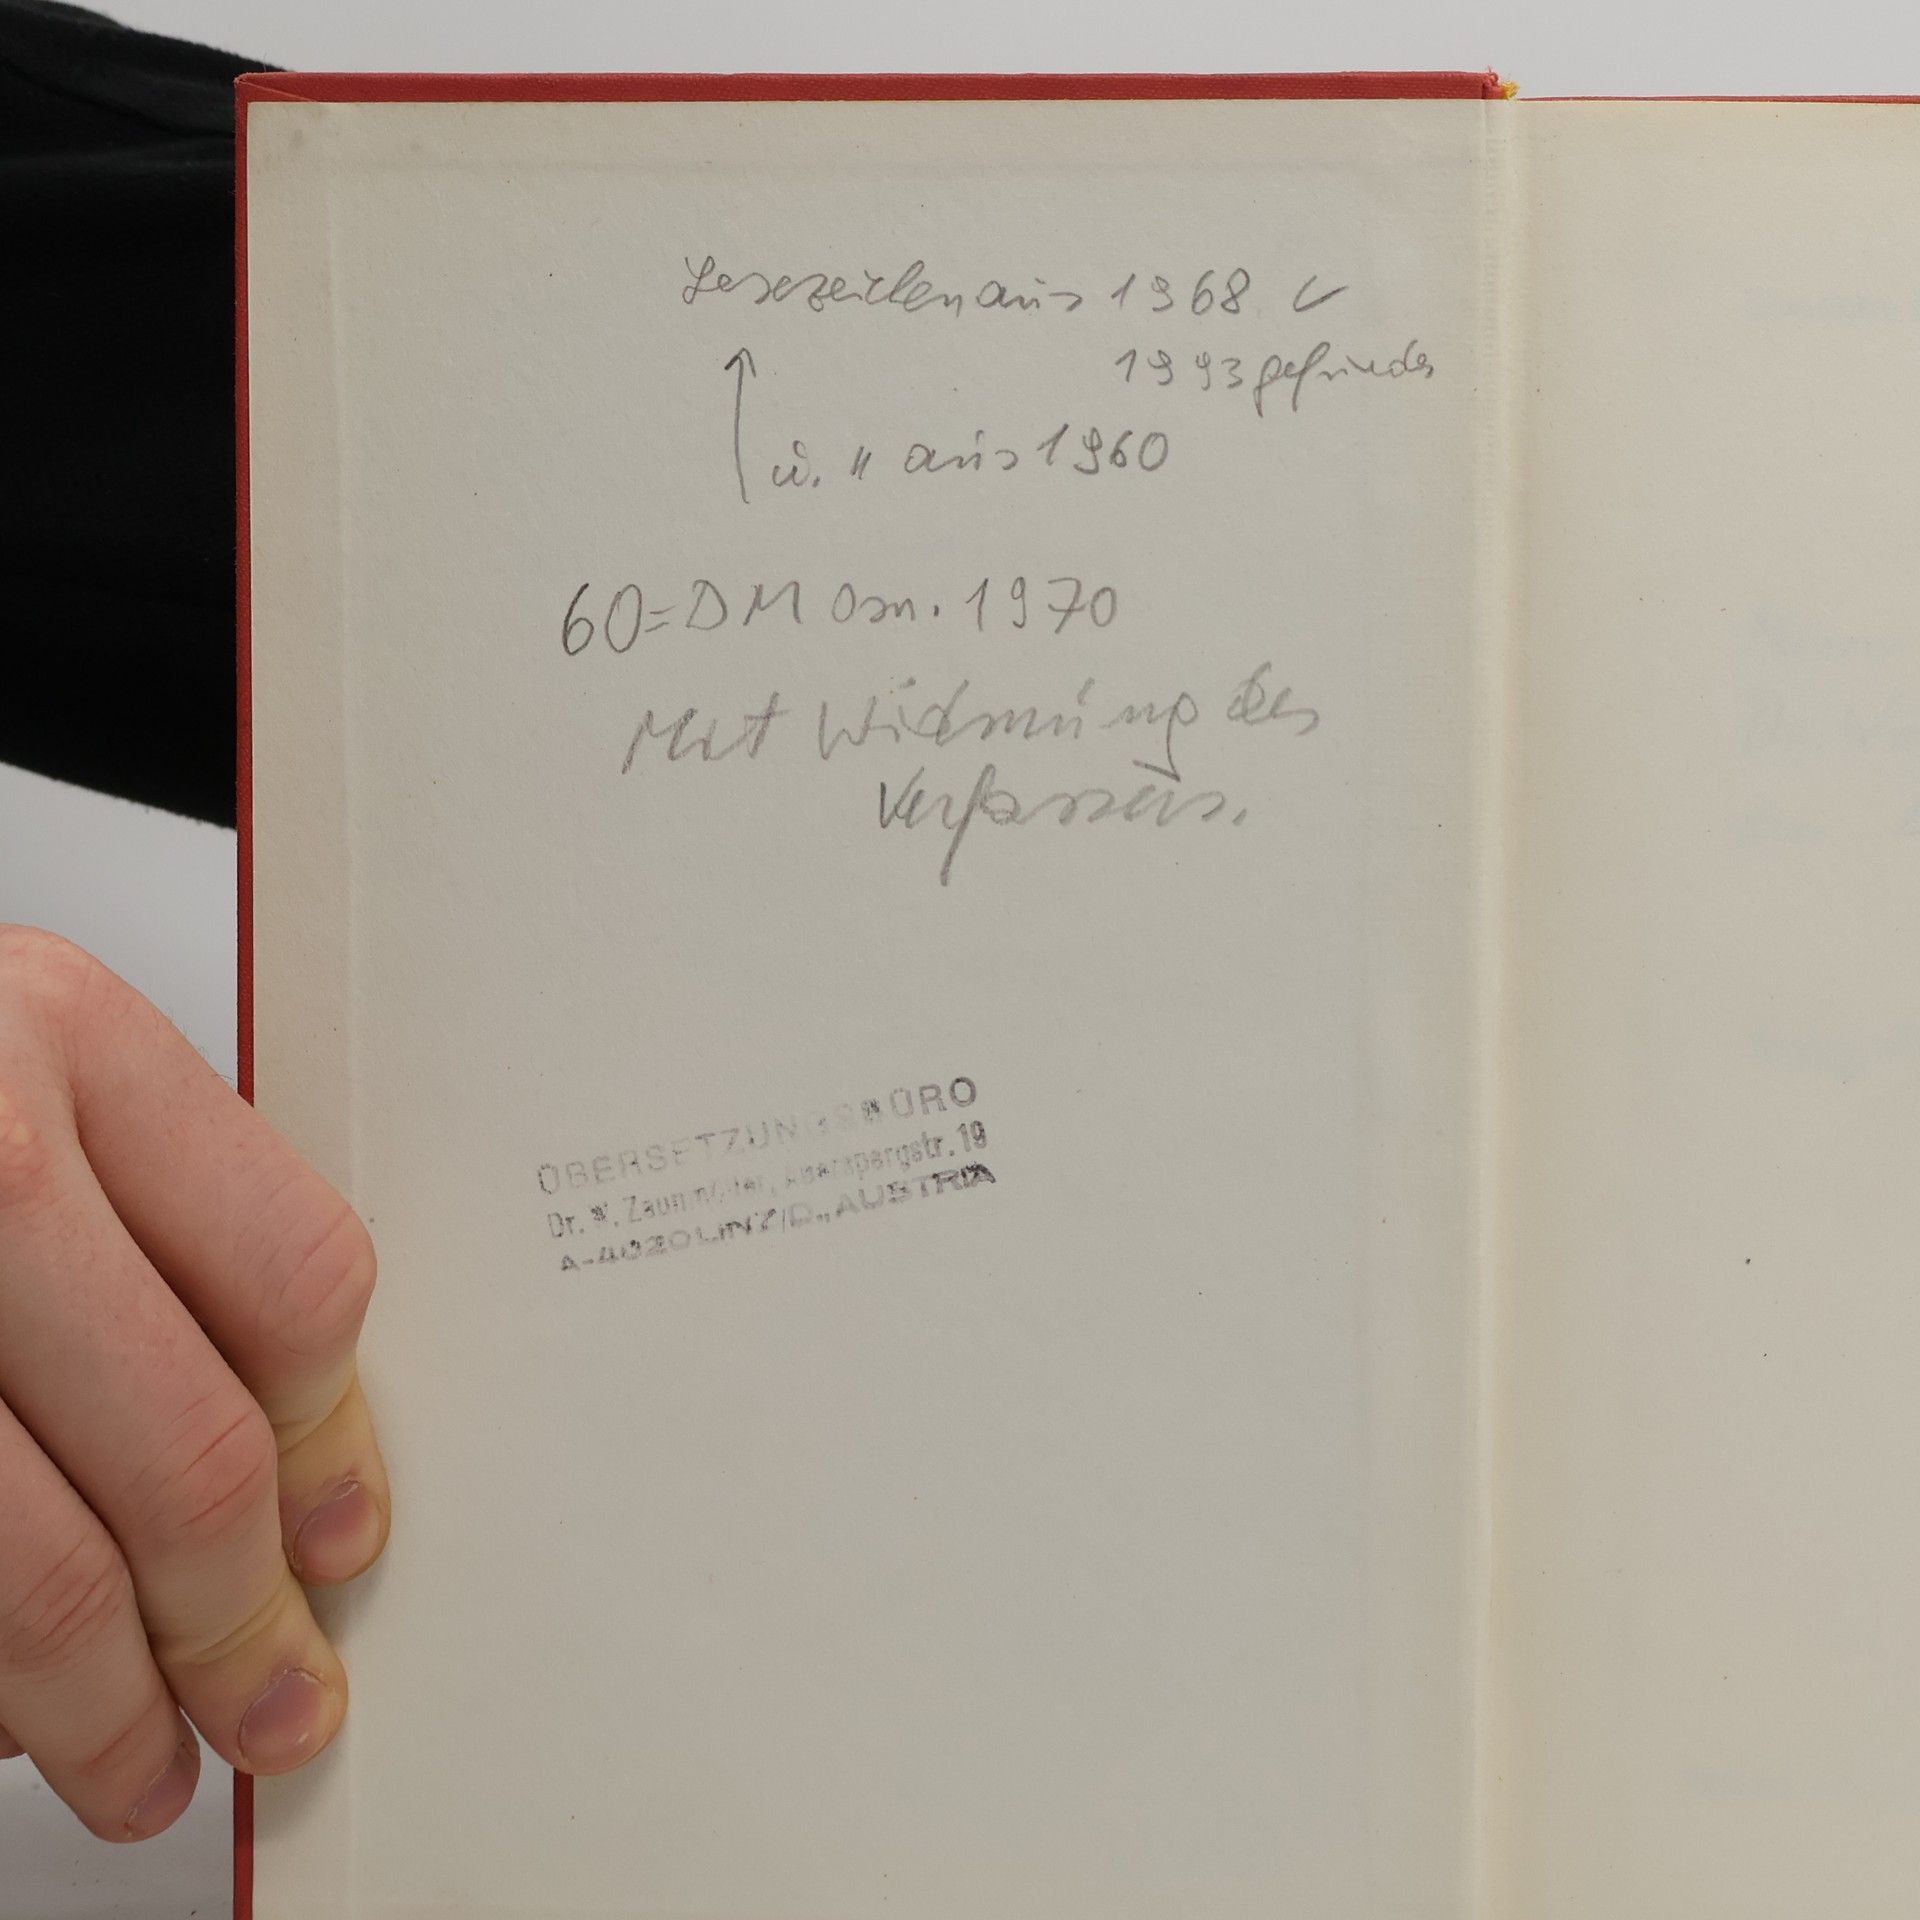 Lesezeichen aus 1968 ✓
1993 gefunden
↑ u. " aus 1960
60= DM Osn. 1970
Mit Widmung des
Verfassers.
ÜBERSETZUNGSBÜRO
Dr. W. Zaunmüller, Auerspergstr. 19
A-4020 LINZ/D., AUSTRIA